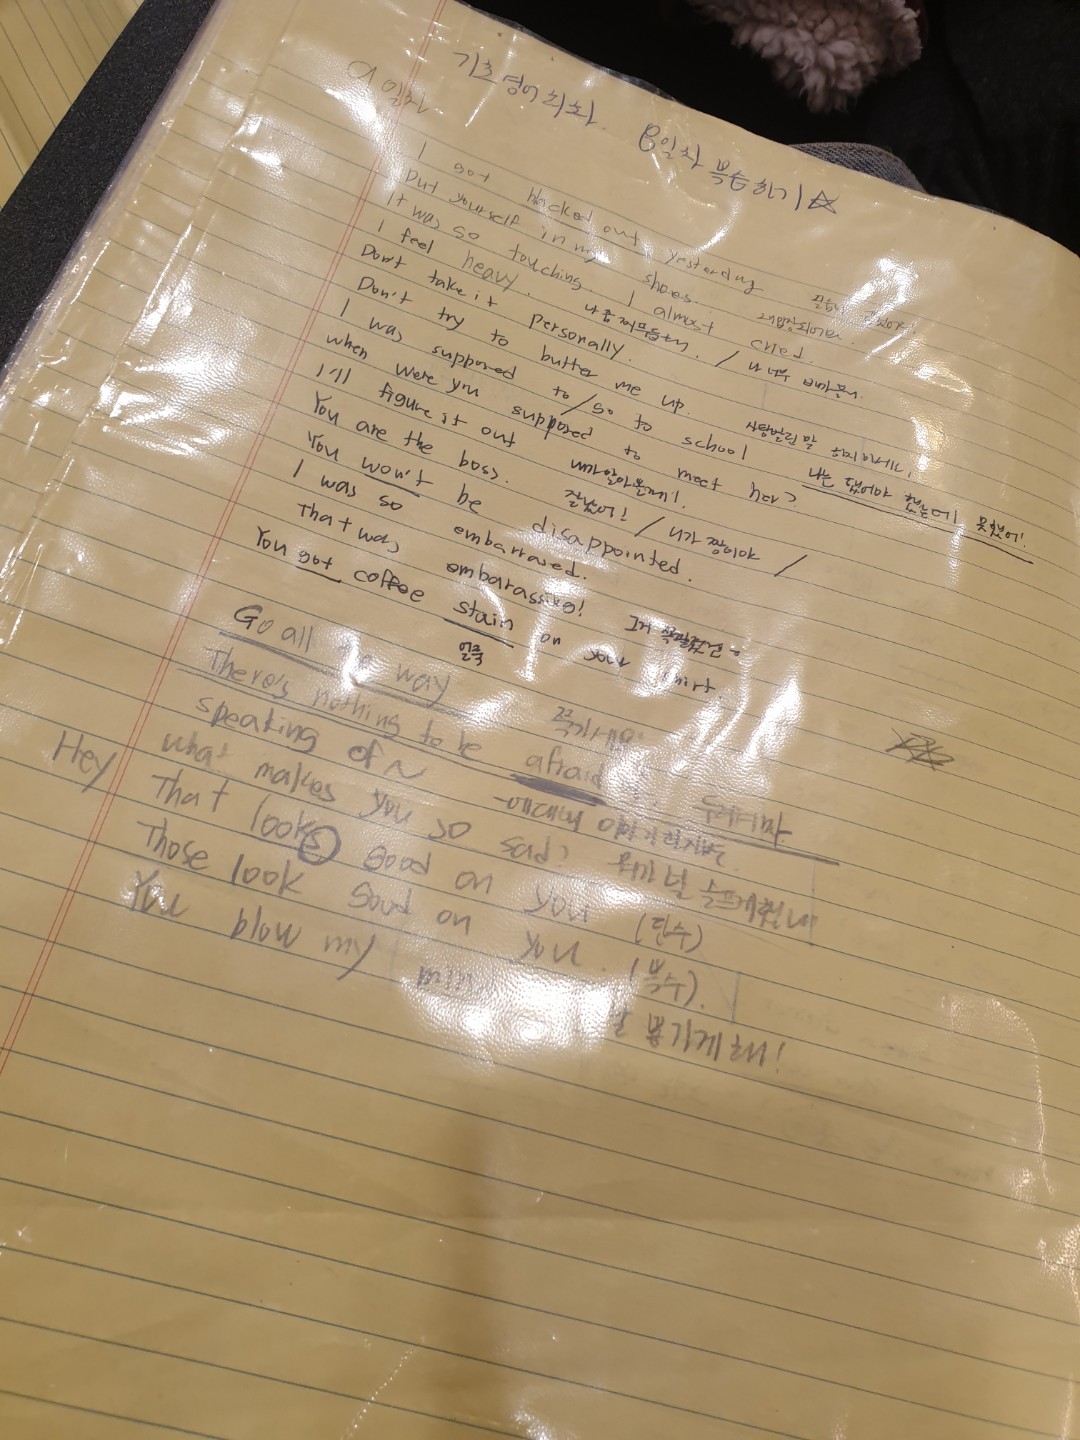 기초영어회화 8일차 복습하기
9일차
I got blacked out yesterday
Put yourself in my shoes.
It was so touching. I almost cried.
I feel heavy. /
Don't take it personally.
Don't try to butter me up.
I was supposed to / go to school
when were you supposed to meet her?
I'll figure it out 내가 알아올게!
You are the boss. 잘났어! / 니가 짱이야 /
You won't be disappointed.
I was so embarrased.
That was embarassing! 그거
You got coffee stain on your shirt.
얼룩
Go all the way 쭉가세요.
There's nothing to be afraid
speaking of ~ ~에대해 이야기
Hey what makes you so sad? 뭐가 널 슬프게했니
That looks good on you (단수)
Those look good on you. (복수).
You blow my